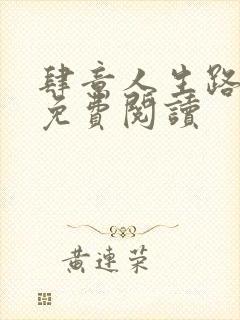 肆意人生路
免費閱讀
黃連荣